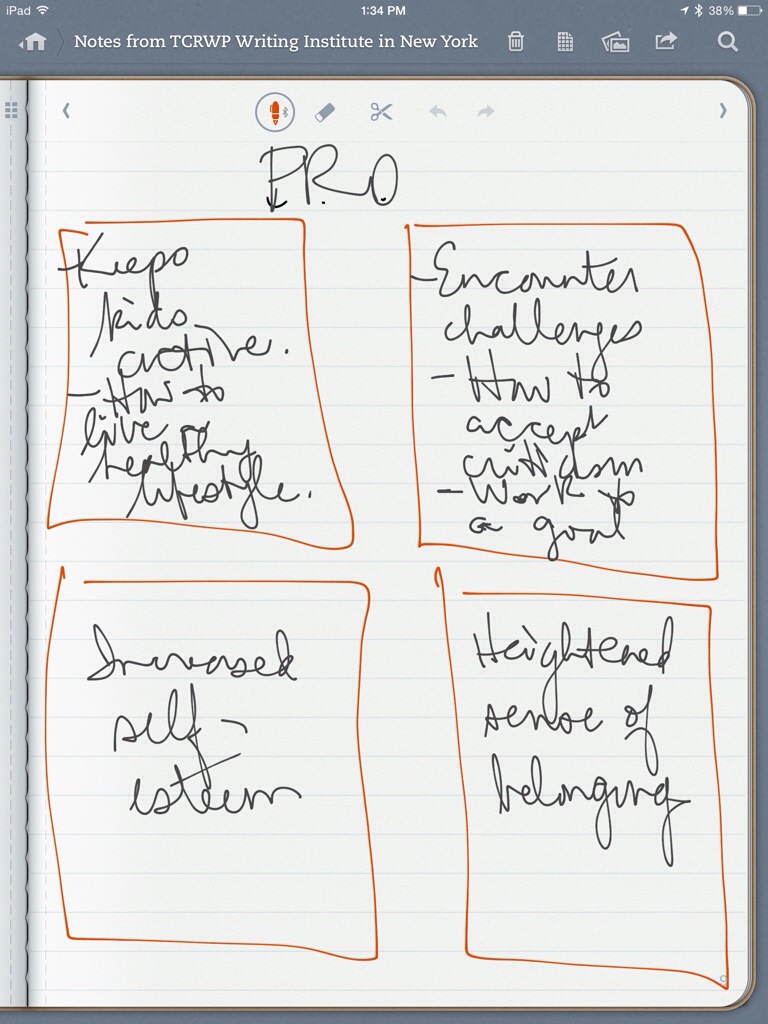 iPad 1:34 PM 38%
Notes from TCRWP Writing Institute in New York
PRO
-Keeps
kids
active.
-How to
live a
healthy
lifestyle.
-Encounter
challenges
-How to
accept
criticism
-Work to
a goal
Increased
self-
esteem
Heightened
sense of
belonging